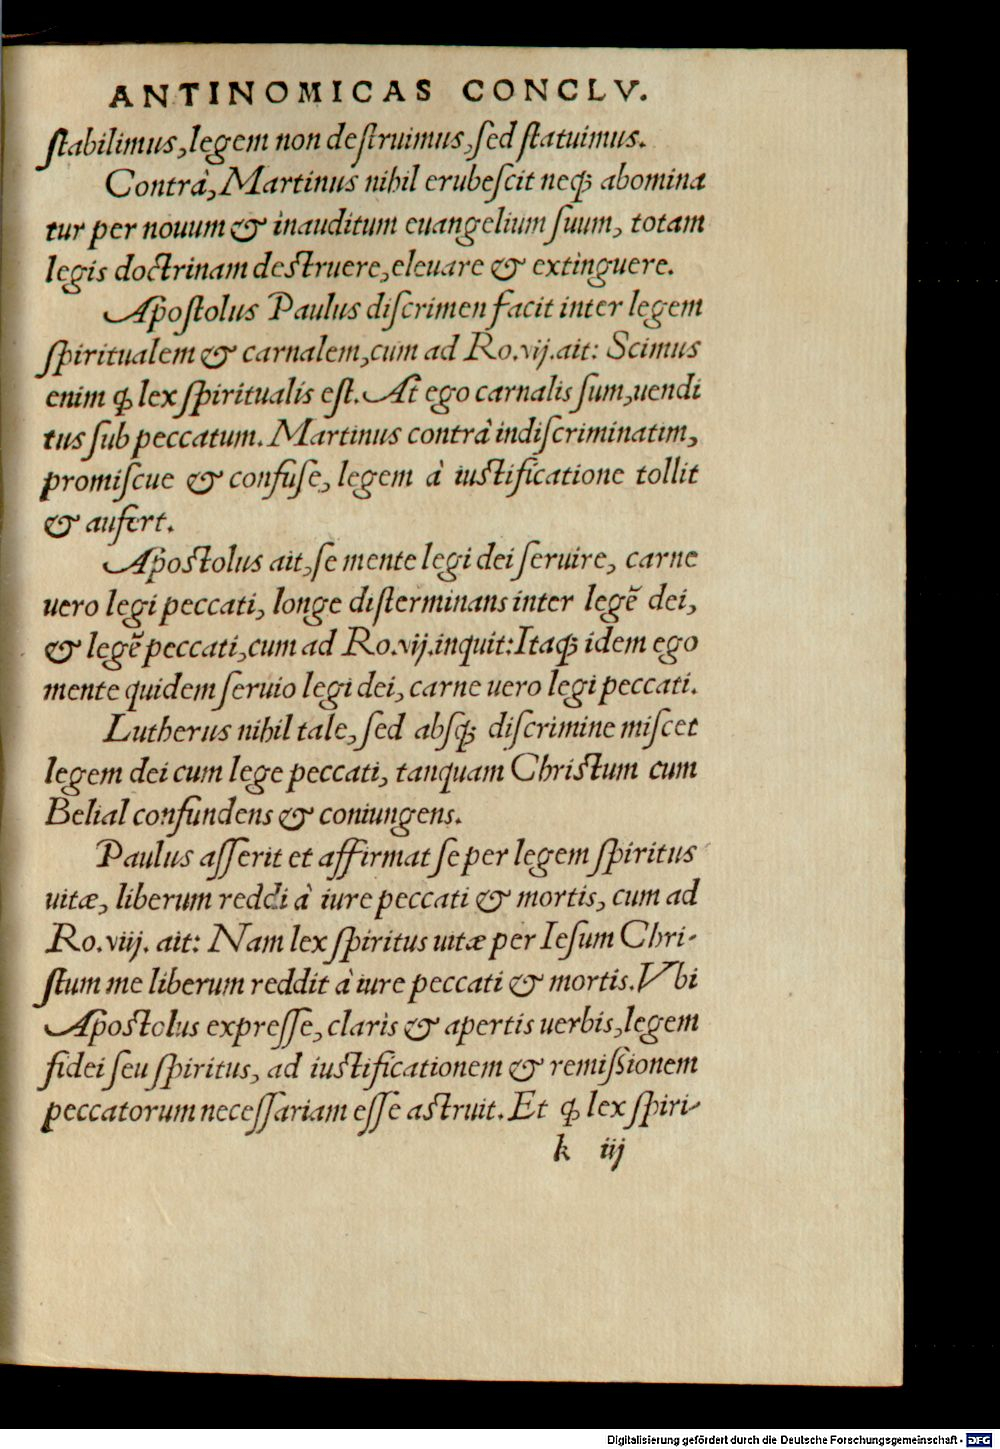 ANTINOMICAS CONCLV.
ſtabilimus, legem non deſtruimus, ſed ſtatuimus.
Contrà, Martinus nihil erubeſcit neq; abomina
tur per nouum & inauditum euangelium ſuum, totam
legis doctrinam deſtruere, eleuare & extinguere.
Apoſtolus Paulus diſcrimen facit inter legem
ſpiritualem & carnalem, cum ad Ro. vij. ait: Scimus
enim ꝙ lex ſpiritualis eſt. At ego carnalis ſum, uendi
tus ſub peccatum. Martinus contrà indiſcriminatim,
promiſcue & confuſe, legem à iuſtificatione tollit
& aufert.
Apoſtolus ait, ſe mente legi dei ſeruire, carne
uero legi peccati, longe diſterminans inter legẽ dei,
& legẽ peccati, cum ad Ro. vij. inquit: Itaq; idem ego
mente quidem ſeruio legi dei, carne uero legi peccati.
Lutherus nihil tale, ſed abſq; diſcrimine miſcet
legem dei cum lege peccati, tanquam Chriſtum cum
Belial confundens & coniungens.
Paulus aſſerit et affirmat ſe per legem ſpiritus
uitæ, liberum reddi à iure peccati & mortis, cum ad
Ro. viij. ait: Nam lex ſpiritus uitæ per Ieſum Chri-
ſtum me liberum reddit à iure peccati & mortis. Vbi
Apoſtolus expreſſe, claris & apertis uerbis, legem
fidei ſeu ſpiritus, ad iuſtificationem & remiſsionem
peccatorum neceſſariam eſſe aſtruit. Et ꝙ lex ſpiri-
k iij
Digitalisierung gefördert durch die Deutsche Forschungsgemeinschaft - DFG